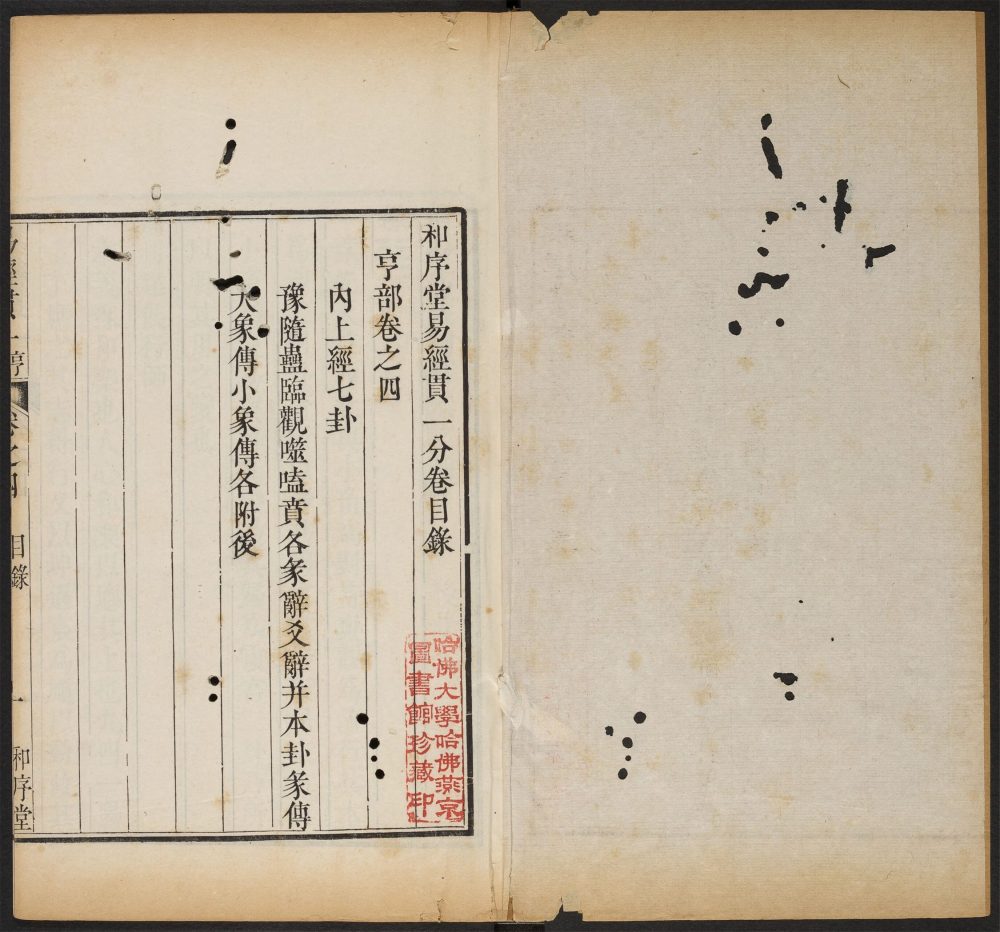 和序堂易經貫一分卷目錄
亨部卷之四
內上經七卦
豫隨蠱臨觀噬嗑賁各彖辭爻辭并本卦彖傳
大象傳小象傳各附後
哈佛大學哈佛燕京
圖書館珍藏印
易經貫一 亨 卷之四 目錄 一 和序堂